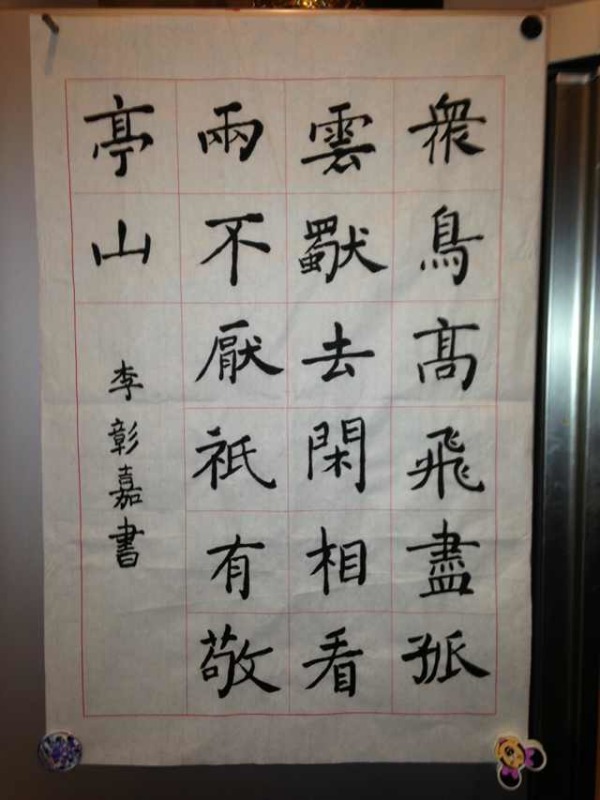 衆鳥髙飛盡孤
雲獨去閑相看
兩不厭祇有敬
亭山
李彰嘉書